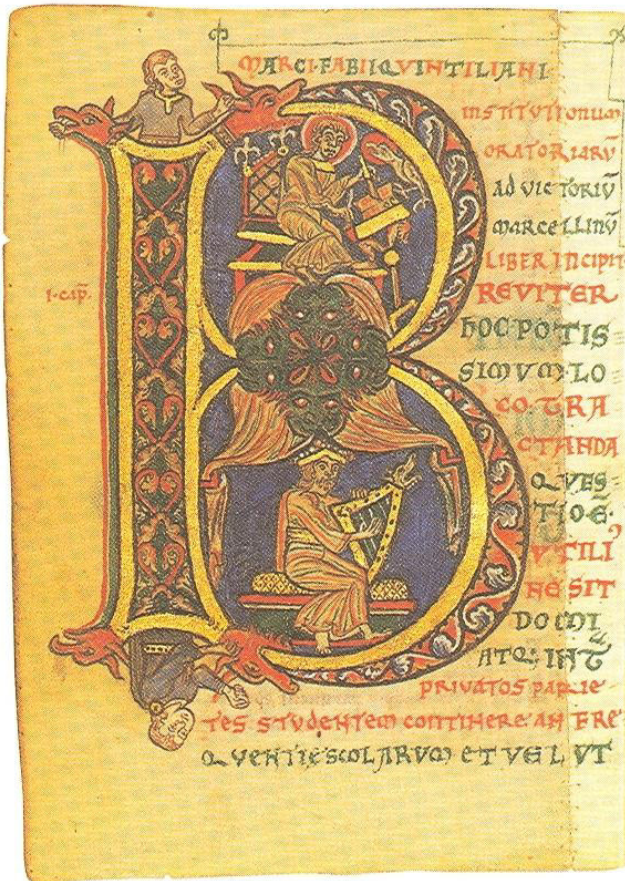 MARCI·FABII QVINTILIANI·
INSTITVTIONUM
ORATORIARV̄
AD VICTORIV̄
MARCELLINV̄
LIBER INCIPIT
I·CAP̄.
BREVITER
HOC POTIS
SIMVM·LO
CO·TRA
CTANDA
QVES
TIO Ē·
VTILI
NE SIT
DOMI
ATQ: INT̄
PRIVATOS PARIE
TES STUDENTEM CONTINERE AN FRE
QVENTIE SCOLARVM ET VELVT